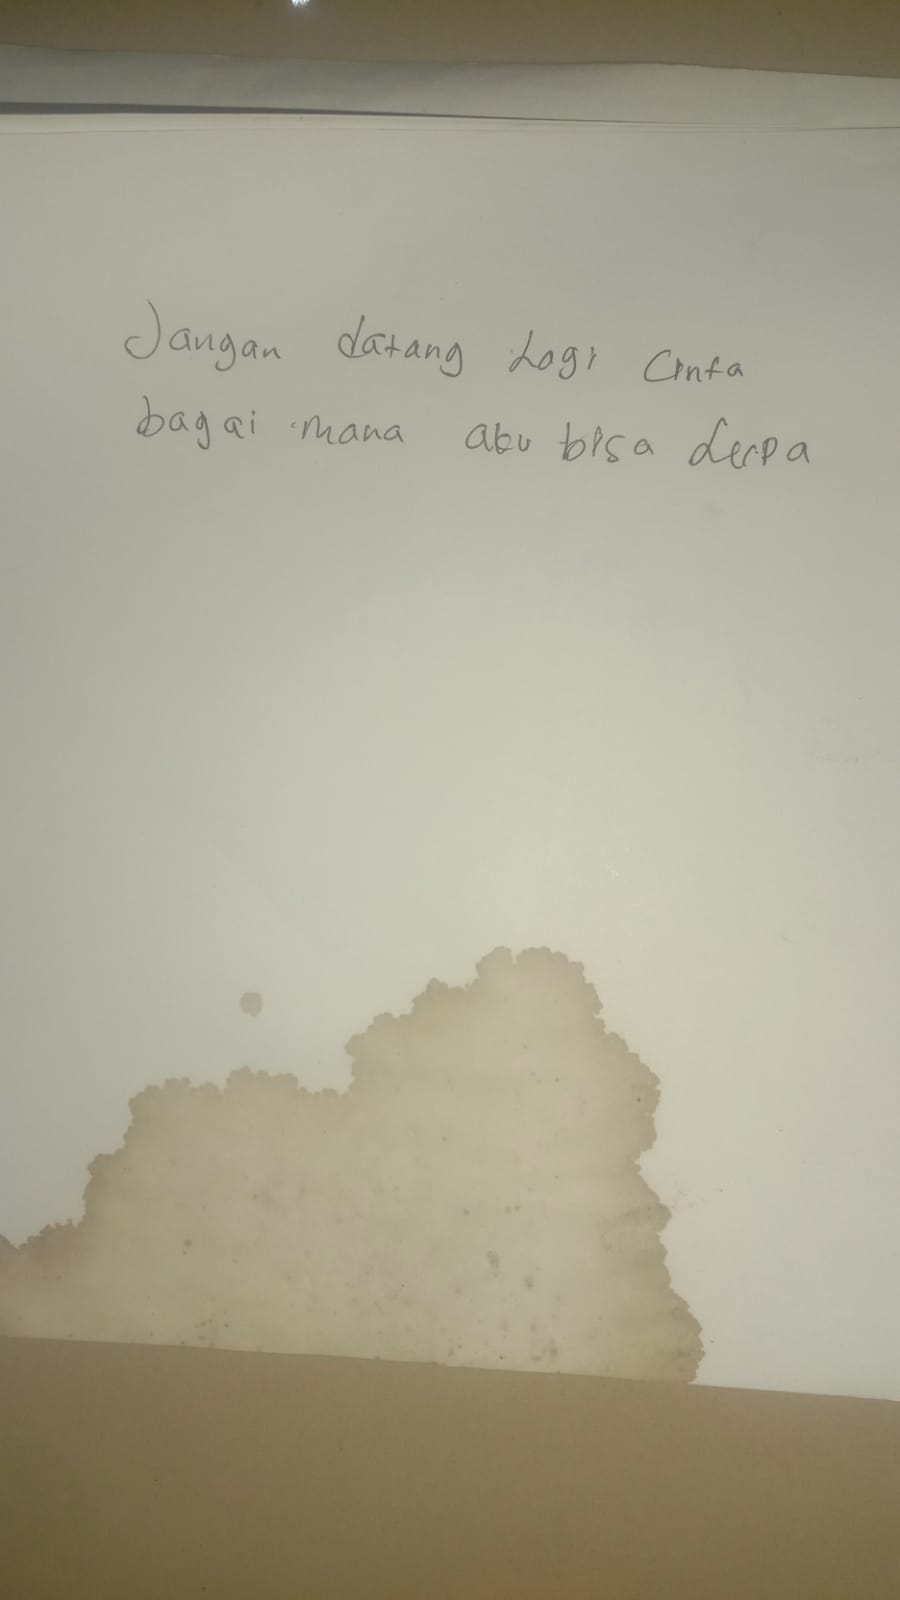 Jangan datang Logi Cinta
bagai mana aku bisa Lerpa